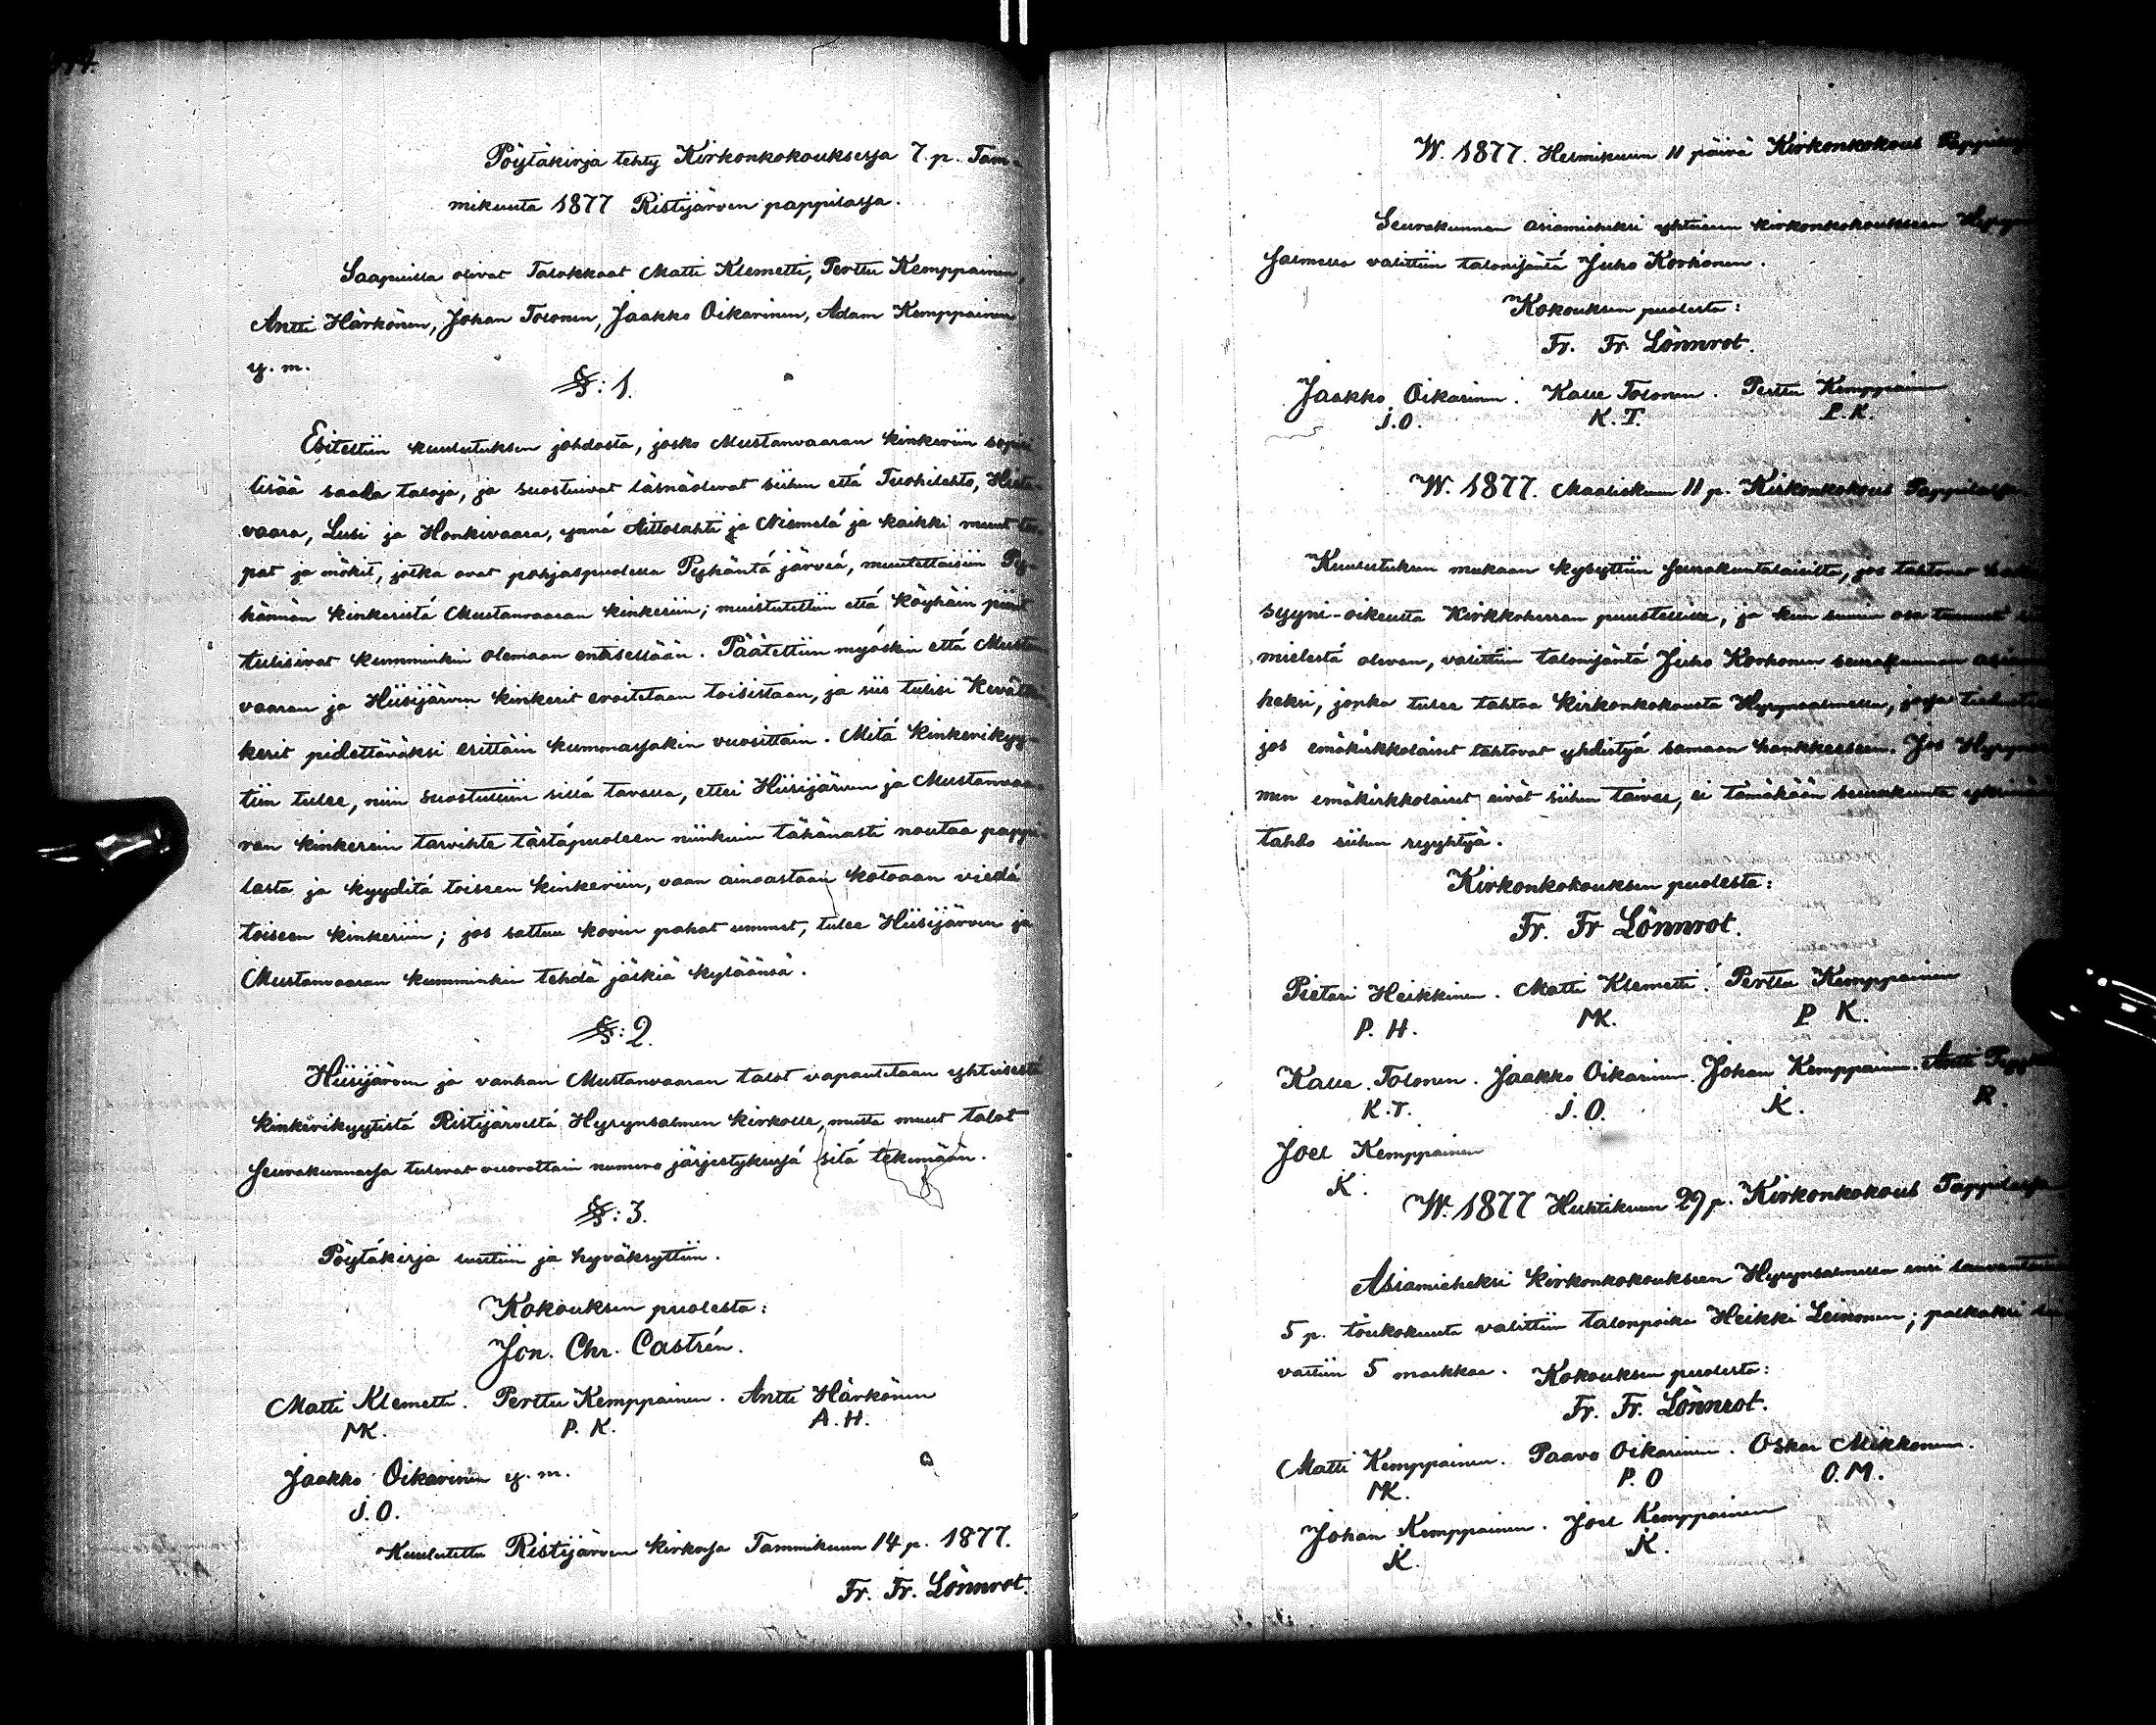 Pöytäkirja tehty Kirkonkokouksessa 7. p. Tam-
mikuuta 1877 Ristijärven pappilassa.
Saapuilla olivat Talokkaat Matti Klemetti, Perttu Kemppainen,
Antti Härkönen, Johan Tolonen, Jaakko Oikarinen, Adam Kemppainen
y. m.
§: 1.
Esitettiin kuulutuksen johdosta, josko Mustanvaaran kinkeriin sopii
lisää saada taloja, ja suostuivat läsnäolevat siihen että Tuohilehto,
vaara, Lusi ja Honkivaara, ynnä Aittolahti ja Niemelä ja kaikki muut
pat ja mökit, jotka ovat pohjaspuolella Pyhäntä järveä, muutettaisiin Py-
hännän kinkeristä Mustanvaaran kinkeriin; muistutettiin että köyhäin piirit
tulisivat kumminkin olemaan entisellään. Päätettiin myöskin että Mustan
vaaran ja Hiisijärven kinkerit eroitetaan toisistaan, ja siis tulisi
kerit pidettäväksi erittäin kummassakin vuosittain. Mitä kinkerikyy-
tiin tulee, niin suostuttiin sillä tavalla, ettei Hiisijärven ja Mustanvaa-
ran kinkerein tarvihte tästäpuoleen niinkuin tähänasti noutaa pappi-
lasta ja kyyditä toiseen kinkeriin, vaan ainoastaan kotoaan viedä
toiseen kinkeriin; jos sattuu kovin pahat ummet, tulee Hiisijärven ja
Mustanvaaran kumminkin tehdä jälkiä kyläänsä.
§: 2.
Hiisijärven ja vanhan Mustanvaaran talot vapautetaan yhteisestä
kinkerikyytistä Ristijärveltä Hyrynsalmen kirkolle, mutta muut talot
seurakunnassa tulevat vuorottain numero järjestyksessä sitä tekemään.
§: 3.
Pöytäkirja luettiin ja hyväksyttiin.
Kokouksen puolesta:
Jon. Chr. Castrén.
Matti Klemetti. Perttu Kemppainen. Antti Härkönen
MK. P. K. A. H.
Jaakko Oikarinen y. m.
J. O.
Kuulutettu Ristijärven kirkossa Tammikuun 14 p. 1877.
Fr. Fr. Lönnrot.
W. 1877. Helmikuun 11 päivä Kirkonkokous Pappilassa
Seurakunnan asiamieheksi yhteiseen kirkonkokoukseen
salmella valittiin talonisäntä Juho Korhonen.
Kokouksen puolesta:
Fr. Fr. Lönnrot.
Jaakko Oikarinen. Kalle Tolonen. Perttu Kemppainen
J. O. K. T. P. K.
W. 1877. Maaliskuun 11 p. Kirkonkokous Pappilassa
Kuulutuksen mukaan kysyttiin seurakuntalaisilta, jos tahtovat
syyni-oikeutta Kirkkoherran puustellille, ja kun suurin osa
mielestä olevan, valittiin talonisäntä Juho Korhonen seurakunnan asiamie
heksi, jonka tulee tahtoa kirkonkokousta Hyrynsalmella, jossa
jos emäkirkkolaiset tahtovat yhdistyä samaan hankkeeseen. Jos
men emäkirkkolaiset eivät siihen taivu, ei tämäkään seurakunta yksinään
tahdo siihen ryyhtyä.
Kirkonkokouksen puolesta:
Fr. Fr Lönnrot.
Pietari Heikkinen. Matti Klemetti. Perttu Kemppainen
P. H. MK. P K.
Kalle Tolonen. Jaakko Oikarinen. Johan Kemppainen. Antti
K. T. J. O. K.
Joel Kemppainen
K.
W. 1877 Huhtikuun 29 p. Kirkonkokous Pappilassa
Asiamieheksi kirkonkokoukseen Hyrynsalmella ensi lauvantaina
5 p. toukokuuta valittiin talonpoika Heikki Leinonen; palkaksi
vattiin 5 markkaa. Kokouksen puolesta:
Fr. Fr. Lönnrot.
Matti Kemppainen. Paavo Oikarinen. Oskar Mikkonen.
MK. P. O O. M.
Johan Kemppainen. Joel Kemppainen
K. K.